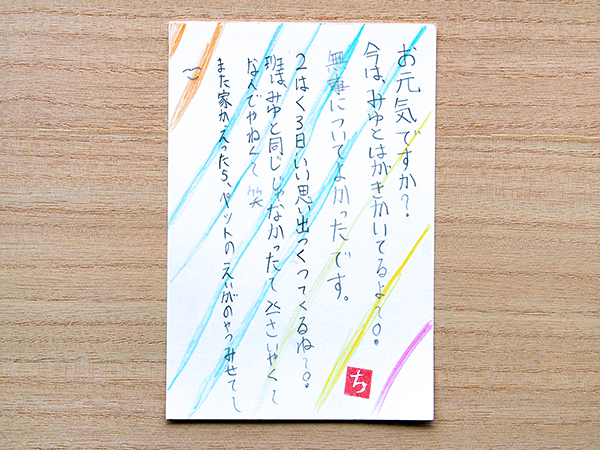 お元気ですか?
今は、みゆとはがきかいてるよ〜。
無事についてよかったです。
2はく3日いい思い出つくってくるね〜。
班は、みゆと同じじゃなかったてさいやく〜
なんでやねんて 笑
また家かえったら、ペットのえいがのやつみせて〜
ち